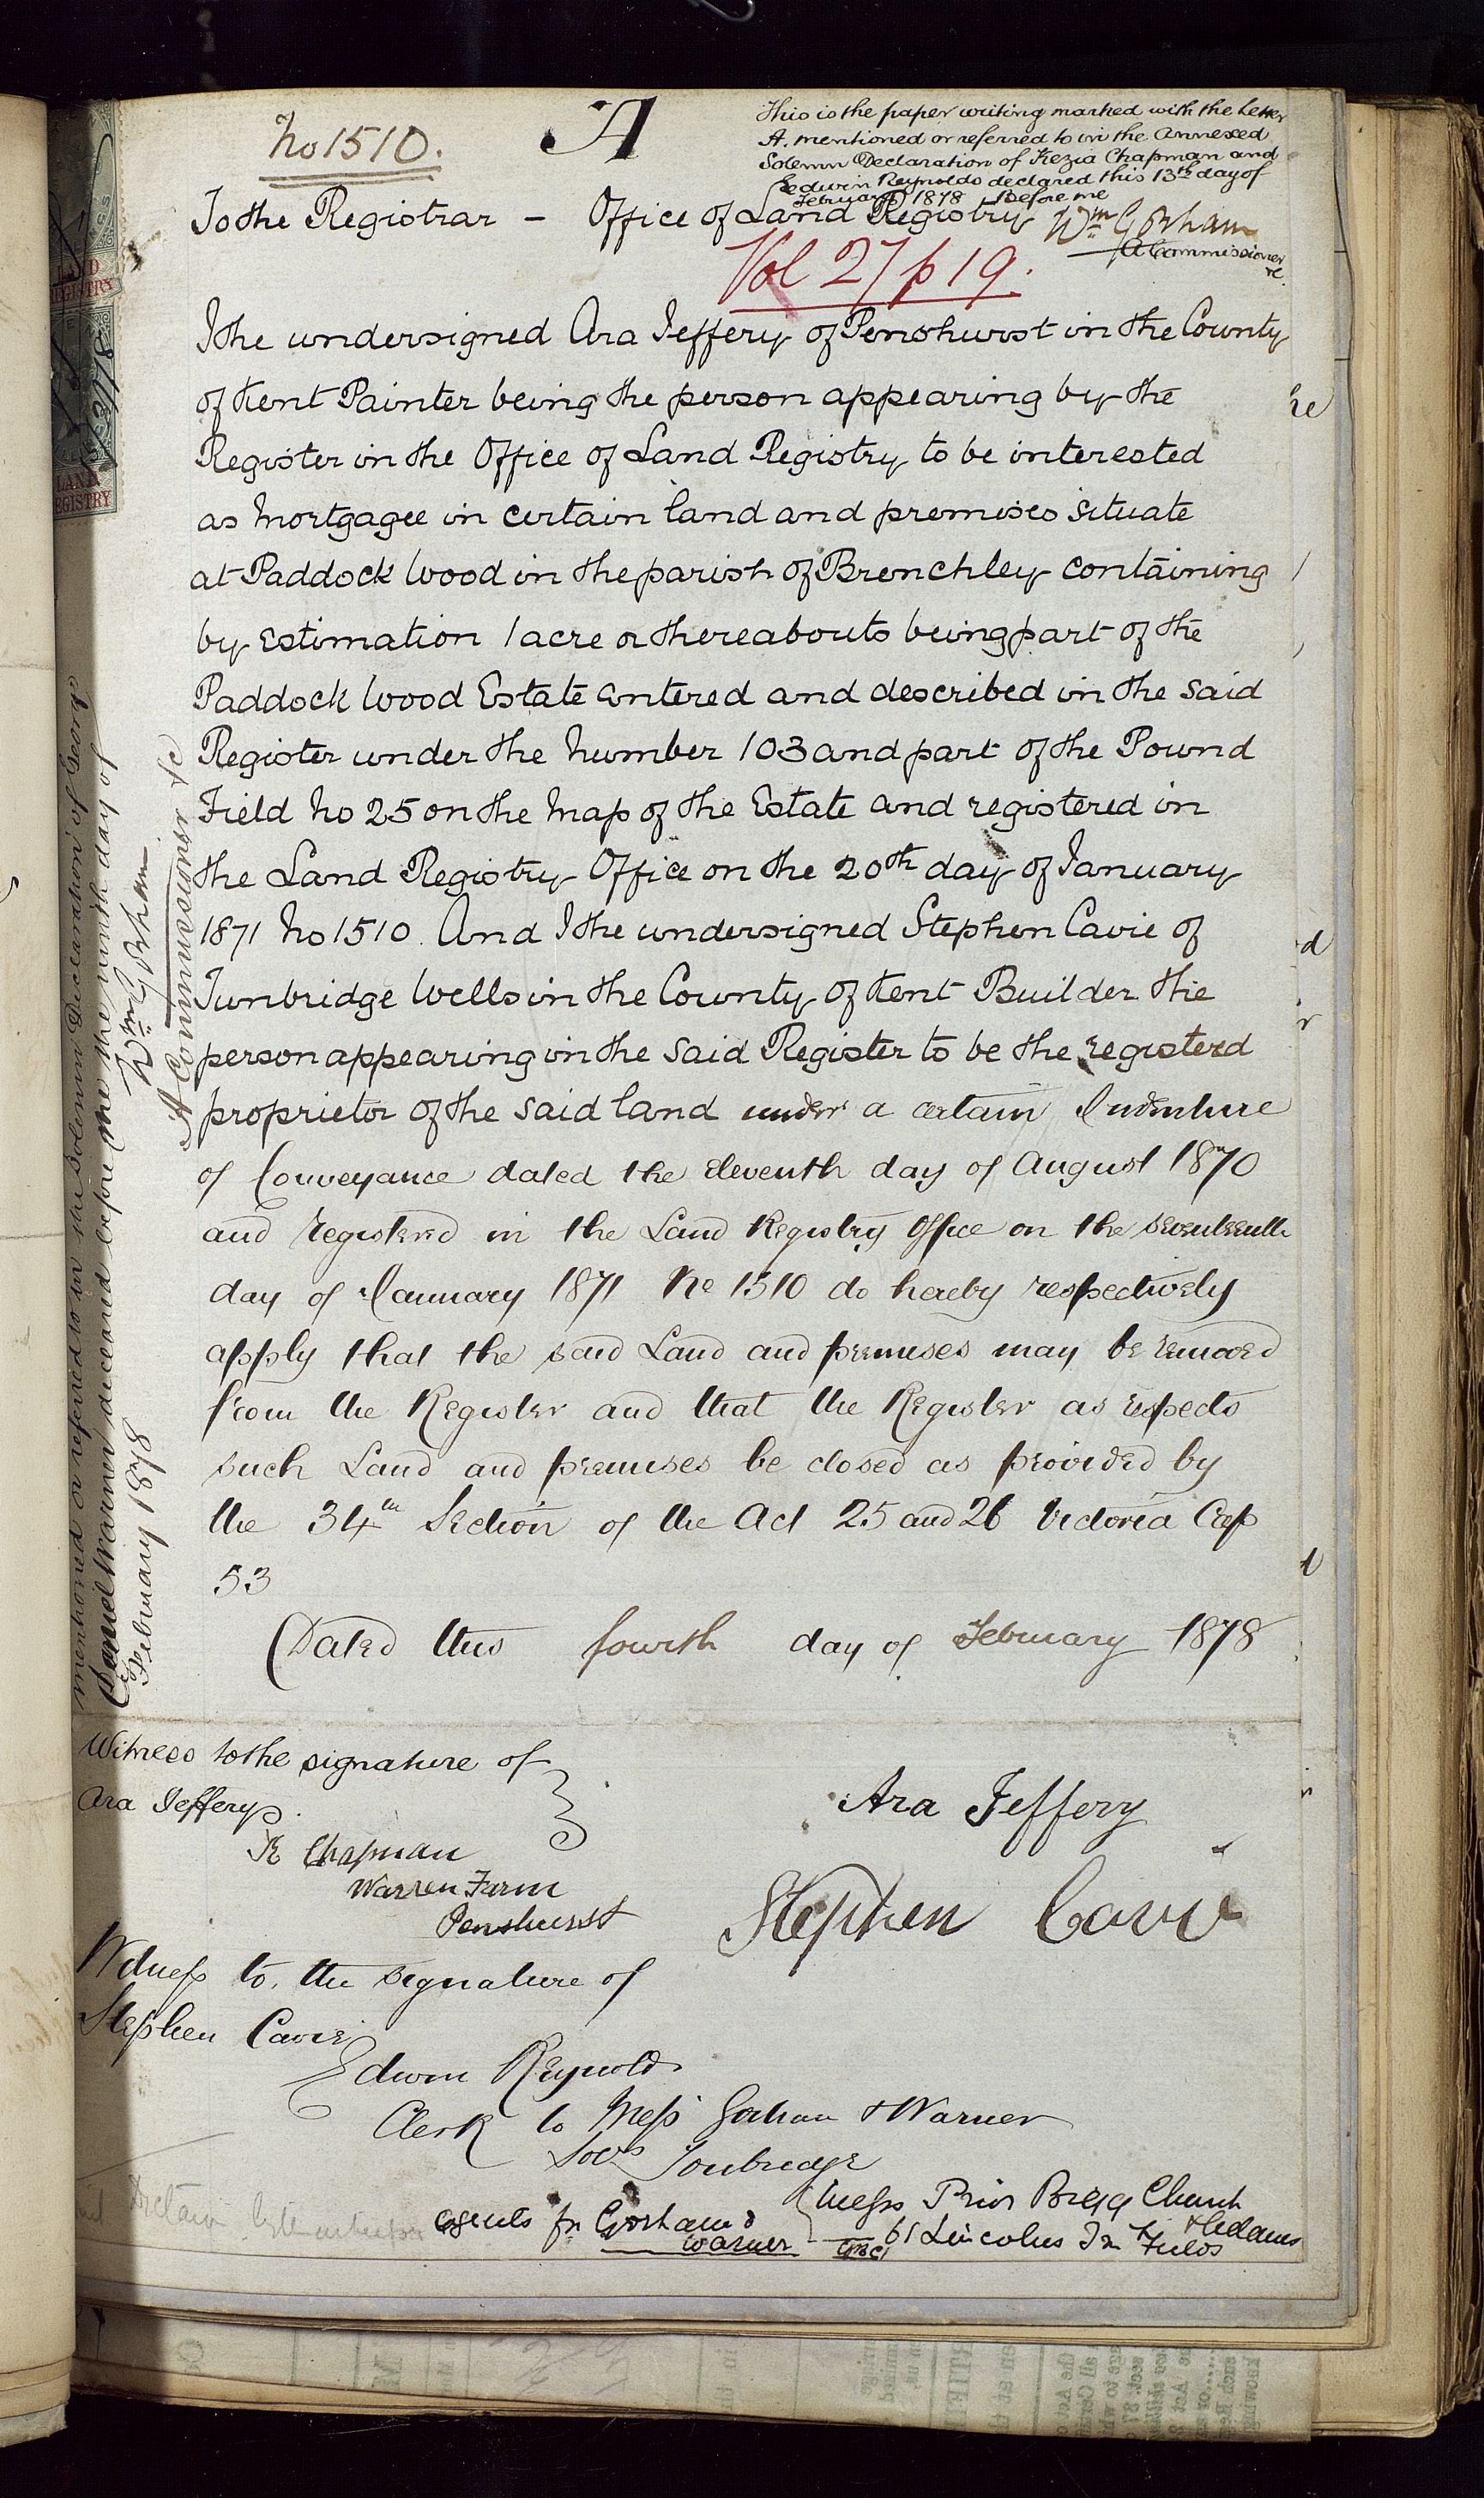 No 1510.
A
This is the paper writing marked with the Letter
A. mentioned or referred to in the Annexed
Solemn Declaration of Kezia Chapman and
Edwin Reynolds declared this 13th day of
February 1878 Before me
Wm Gorham
A Commissioner
&c
To the Registrar – Office of Land Registry
Vol 27 p 19.
I the undersigned Ara Jeffery of Penshurst in the County
of Kent Painter being the person appearing by the
Register in the Office of Land Registry to be interested
as Mortgagee in certain land and premises situate
at Paddock Wood in the parish of Brenchley containing
by Estimation 1 acre or thereabouts being part of the
Paddock Wood Estate entered and described in the said
Register under the Number 103 and part of the Pound
Field No 25 on the Map of the Estate and registered in
the Land Registry Office on the 20th day of January
1871 No 1510. And I the undersigned Stephen Cavie of
Tunbridge Wells in the County of Kent Builder the
person appearing in the said Register to be the registered
proprietor of the said land under a certain Indenture
of Conveyance dated the Eleventh day of August 1870
and registered in the Land Registry Office on the seventeenth
day of January 1871 No 1510 do hereby respectively
apply that the said Land and premises may be removed
from the Register and that the Register as respects
such Land and premises be closed as provided by
the 34th Section of the Act 25 and 26 Victoria Cap
53
Dated this fourth day of February 1878
Witness to the signature of
Ara Jeffery.
K Chapman
Warren Farm
Penshurst
Ara Jeffery
Stephen Cavie
Witness to the signature of
Stephen Cavie
Edwin Reynolds
Clerk to Mess Gorham & Warner
Sols Tonbridge
agents for Gorham &
Warner
Messrs Prior Bigg Church
& Adams
61 Lincolns Inn Fields
mentioned or referred to in the solemn Declaration of George
Daniel Warner declared before me the ninth day of
February 1878
Wm Gorham
A Commissioner &c
LAND
REGISTRY
LAND
REGISTRY